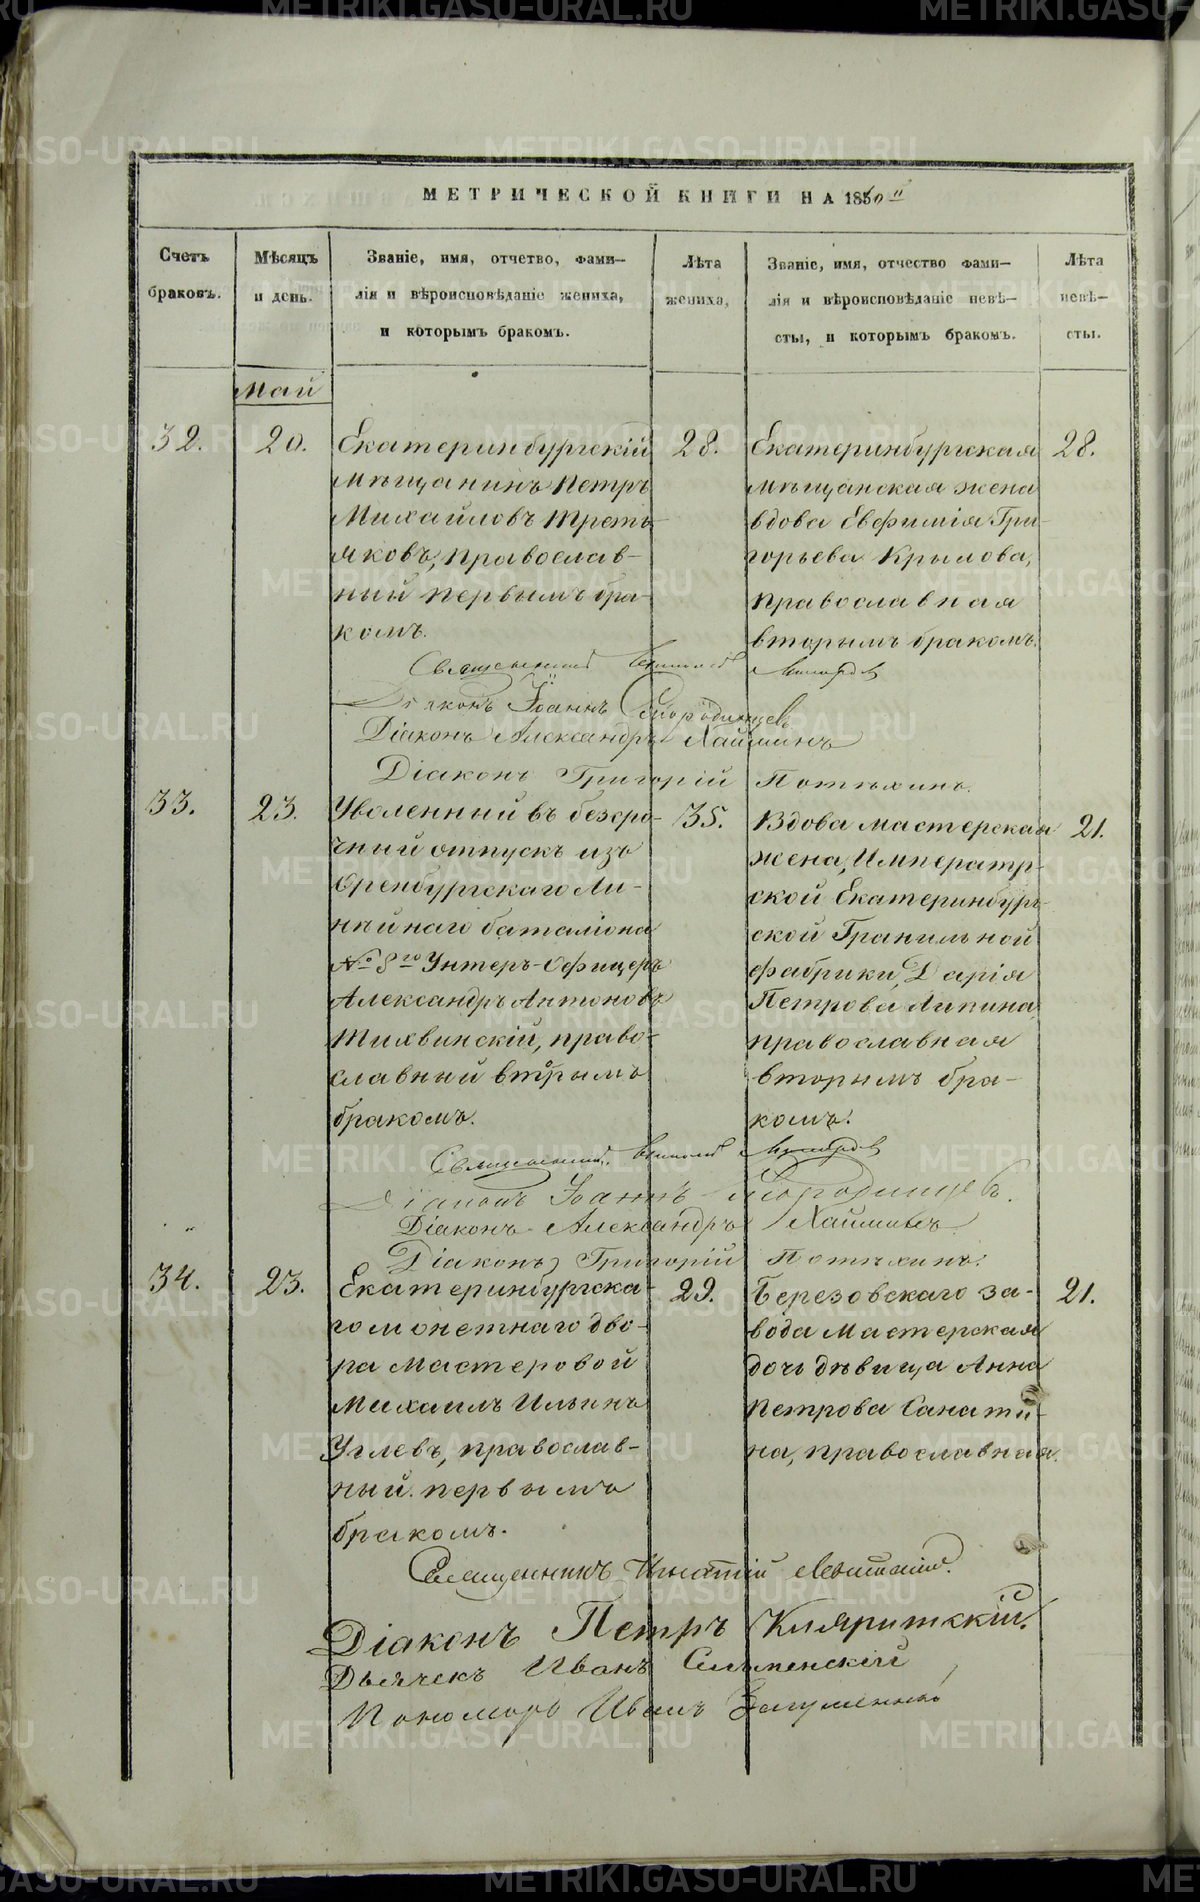 МЕТРИЧЕСКОЙ КНИГИ НА 1860й
Счетъ браковъ.
Мѣсяцъ и день.
Званіе, имя, отчетво, фами-
лія и вѣроисповѣданіе жениха,
и которымъ бракомъ.
Лѣта жениха,
Званіе, имя, отчество фами-
лія и вѣроисповѣданіе невѣ-
сты, и которымъ бракомъ.
Лѣта невѣ-
сты.
Май
32.
20.
Екатеринбургскій
мѣщанинъ Петръ
Михайловъ Треть-
яковъ, православ-
ный первымъ бра-
комъ.
28.
Екатеринбургская
мѣщанская жена
вдова Евфимія Гри-
горьева Крылова,
православная
вторымъ бракомъ.
28.
Священникъ
Діаконъ Іоаннъ Смородинцевъ
Діаконъ Александръ Хайминъ
Діаконъ Григорій Потѣхинъ.
33.
23.
Уволенный въ безсро-
чный отпускъ изъ
Оренбургскаго Ли-
нѣйнаго баталіона
№ 8го Унтеръ-Офицеръ
Александръ Антоновъ
Тихвинскій, право-
славный вторымъ
бракомъ.
35.
Вдова мастерская
жена, Императр-
ской Екатеринбург-
ской Гранильной
фабрики, Дарія
Петрова Липина
православная
вторымъ бра-
комъ.
21.
Священникъ
Діаконъ Іоаннъ Смородинцевъ.
Діаконъ Александръ Хайминъ
Діаконъ Григорій Потѣхинъ.
34.
23.
Екатеринбургска-
го монетнаго дво-
ра мастеровой
Михаилъ Ильинъ
Углевъ, православ-
ный первымъ
бракомъ.
29.
Березовскаго за-
вода Мастерская
дочь дѣвица Анна
Петрова Санати-
на, православная.
21.
Священникъ Игнатій Левитскій.
Діаконъ Петръ
Дьячекъ Иванъ
Пономарь Иванъ
METRIKI.GASO-URAL.RU